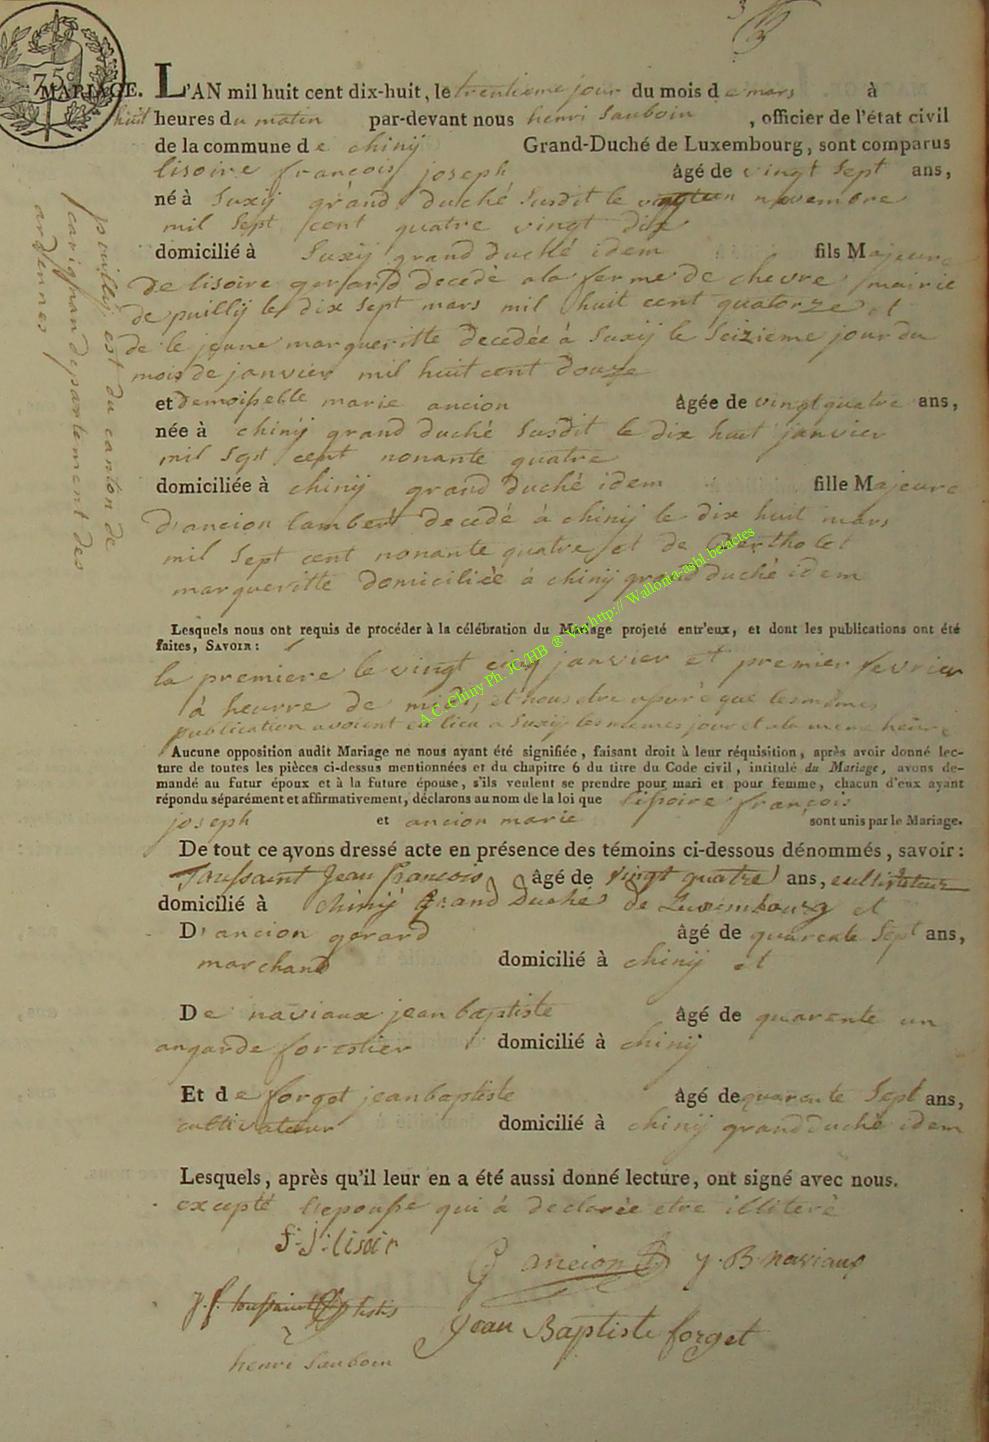 75
MARIAGE. L'AN mil huit cent dix-huit, le trentieme jour du mois de mars à
huit heures du matin par-devant nous henri Sauboin, officier de l'état civil
de la commune de chinÿ Grand-Duché de Luxembourg, sont comparus
lisoire françois joseph âgé de vingt Sept ans,
né à Suxÿ grand duché Susdit le novembre
mil Sept cent quatre vingt dix
domicilié à Suxÿ grand duché idem fils Majeure
de lisoire gerard decedé a la ferme de chevre mairie
de puillÿ le dix Sept mars mil huit cent quatorze et
de le jeune margueritte decedée à Suxÿ le Seizieme jour du
mois de janvier mil huit cent douze
et demoiselle marie ancion âgée de vingt quatre ans,
née à chinÿ grand duché Susdit le dix huit janvier
mil Sept cent nonante quatre
domiciliée à chinÿ grand duché idem fille Majeure
d'ancion lambert decedé à chinÿ le dix huit mars
mil Sept cent nonante quatre et de Bertholet
margueritte domiciliée à chinÿ grand duché idem
puillÿ est du canton de
carignan departement des
ardennes
A.C. Chiny Ph. JC/HB @ Via http:// Wallonia-asbl.be/actes
Lesquels nous ont requis de procéder à la célébration du Mariage projeté entr'eux, et dont les publications ont été
faites, SAVOIR :
la premiere le vingt cinq janvier et premier fevrier
à heurre de midi, et nous etre aparé que les mêmes
publication avoient eu lieu a Suxÿ les memes jour et a la meme heure
Aucune opposition audit Mariage ne nous ayant été signifiée, faisant droit à leur réquisition, après avoir donné lec-
ture de toutes les pièces ci-dessus mentionnées et du chapitre 6 du titre du Code civil, intitulé du Mariage, avons de-
mandé au futur époux et à la future épouse, s'ils veulent se prendre pour mari et pour femme, chacun d'eux ayant
répondu séparément et affirmativement, déclarons au nom de la loi que lisoire françois
joseph et ancion marie sont unis par le Mariage.
De tout ce avons dressé acte en présence des témoins ci-dessous dénommés, savoir :
Toussaint Jean françois âgé de vingt quatre ans, cultivateur
domicilié à Chinÿ Grand Duché de Luxembourg et
D'ancion gerard âgé de quarente Sept ans,
marchand domicilié à chinÿ et
De naviaux jean baptiste âgé de quarente un
an garde forestier domicilié à chinÿ
Et de forget jean baptiste âgé de quarante Sept ans,
cultivateur domicilié à chinÿ grand duché idem
Lesquels, après qu'il leur en a été aussi donné lecture, ont signé avec nous.
excepté l'epouse qui à declarée etre illiterè
f. j. lisoir
G ancion J. B naviaux
j. f. toussaint
Jean Baptiste forget
henri Sauboin